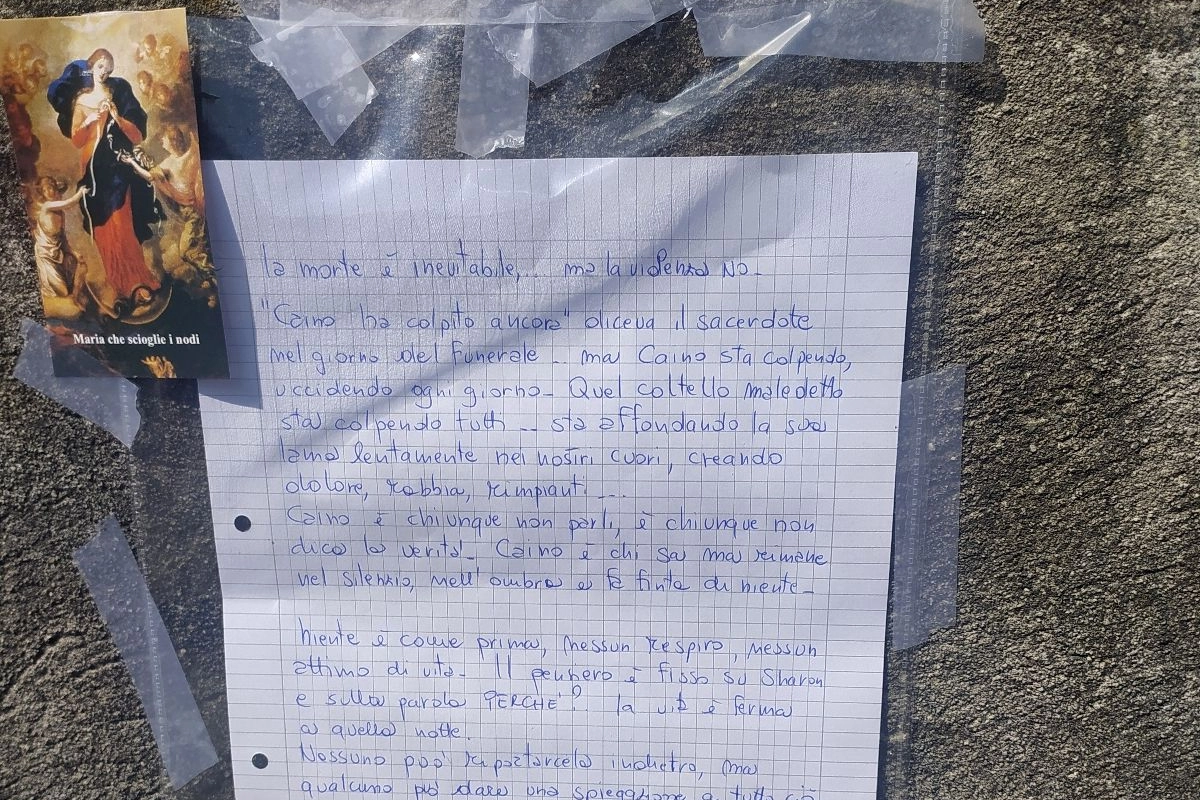 Maria che scioglie i nodi
la morte è inevitabile,... ma la violenza NO-
"Caino ha colpito ancora" diceva il sacerdote
nel giorno del funerale... ma Caino sta colpendo,
uccidendo ogni giorno- Quel coltello maledetto
sta colpendo tutti... sta affondando la sua
lama lentamente nei nostri cuori, creando
dolore, rabbia, rimpianti...
Caino è chiunque non parli, è chiunque non
dica la verità- Caino è chi sa ma rimane
nel silenzio, nell'ombra e fa finta di niente-
Niente è come prima, nessun respiro, nessun
attimo di vita- Il pensiero è fisso su Sharon
e sulla parola PERCHÈ? la vita è ferma
a quella notte.
Nessuno può riportarcela indietro, ma
qualcuno può dare una spiegazione a tutto ciò